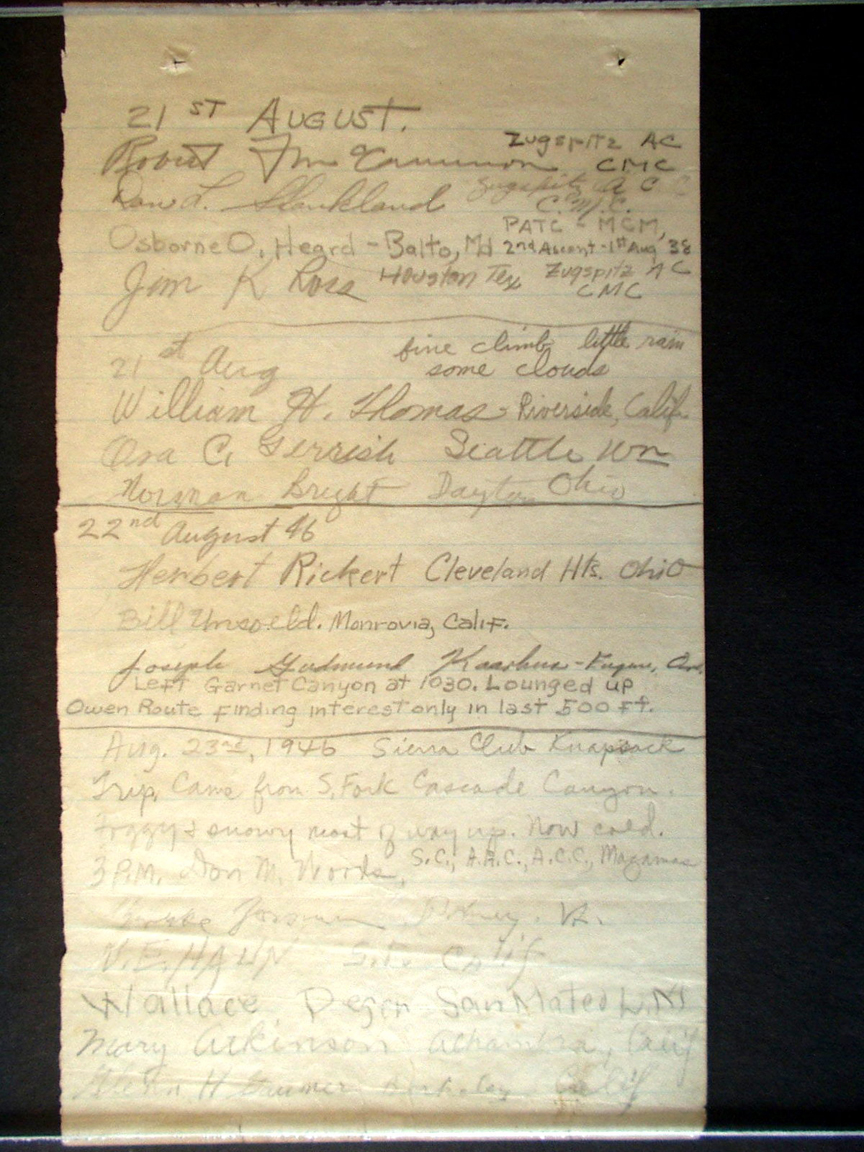 21ST AUGUST.
Robert Zugspitz AC
CMC
Dan L. Zugspitz A C C
C.M.C.
PATC - MCM,
Osborne O. Heard - Balto, Md 2nd Ascent - 1st Aug 38
Jim K Ross Houston Tex Zugspitz AC
CMC
21st Aug fine climb little rain
some clouds
William H. Thomas - Riverside, Calif.
Ora C. Gerrish Seattle Wn
Norman Bright Dayton Ohio
22nd August 46
Herbert Rickert Cleveland Hts. Ohio
Bill Unsoeld. Monrovia, Calif.
Joseph Gudmund - Eugene, Ore.
Left Garnet Canyon at 1030. Lounged up
Owen Route finding interest only in last 500 ft.
Aug. 23rd, 1946 Sierra Club Knapsack
Trip. Came from S. Fork Cascade Canyon.
Foggy & snowy most of way up. Now cold.
3 P.M. Don M. Woods, S.C., A.A.C., A.C.C., Mazamas
Va.
Calif
Wallace San Mateo
Mary Atkinson Alhambra, Calif
Glenn H Berkeley Calif